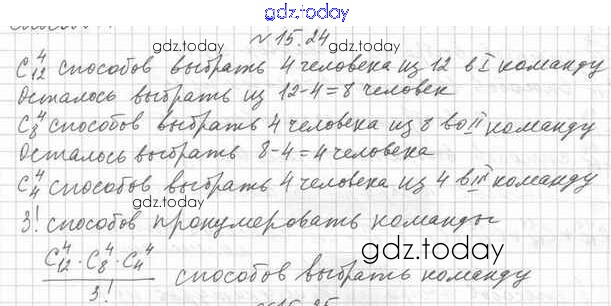 gdz.today
№15.24
gdz.today
C₁₂⁴ способов выбрать 4 человека из 12 в I команду
Осталось выбрать из 12-4=8 человек
C₈⁴ способов выбрать 4 человека из 8 во II команду
Осталось выбрать 8-4=4 человека
C₄⁴ способов выбрать 4 человека из 4 в III команду
3! способов пронумеровать команды
gdz.today
C₁₂⁴·C₈⁴·C₄⁴
3!
способов выбрать команду
gdz.today
№15.25